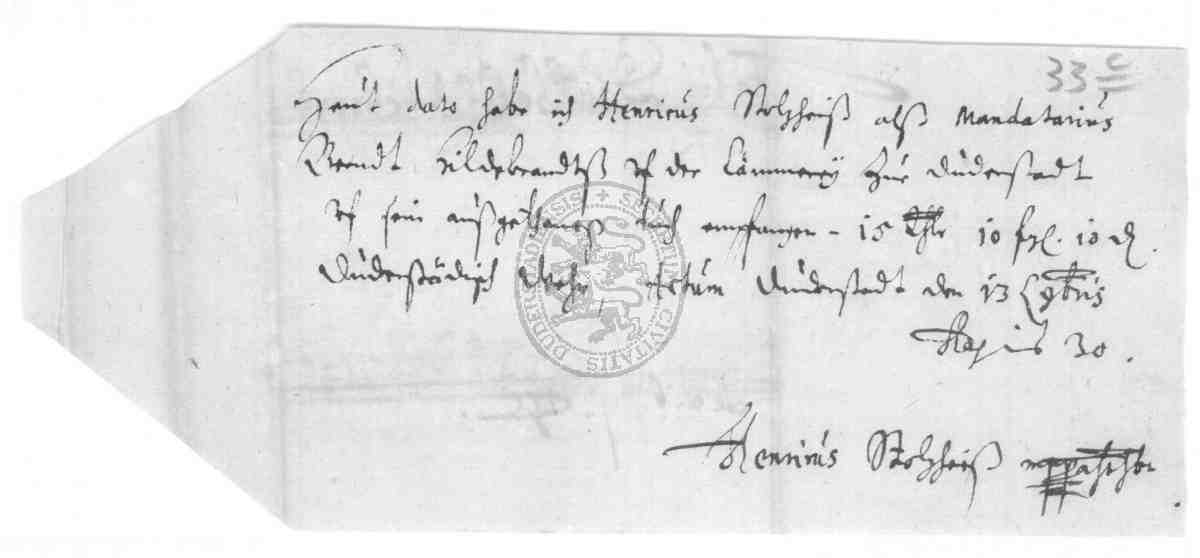 33 c
Heut dato habe ich Henricus Stolzheiß alß Mandatarius
Berndt Hildebrandtß uf der Cämmerey Zue Duderstadt
uf sein außgethaneß empfangen - 15 Thlr 10 ßgl. 10 d.
Duderstädisch Actum Duderstadt den 13 9bris
30.
Henricus Stolzheiß
SIGILLUM CIVITATIS DUDERSTADENSIS